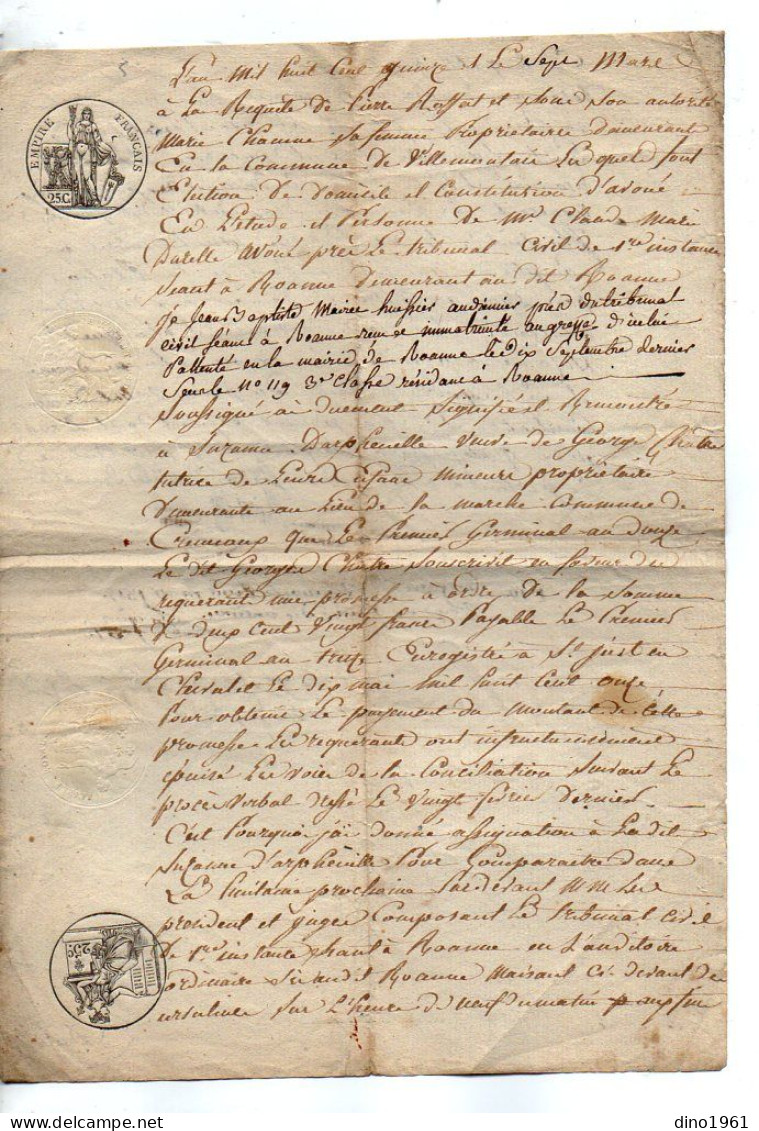 L'an Mil huit Cent quinze & Le Sept Mars
à La Requête de Pierre Roffat et sous son autorité
Marie Chamme Sa femme Propriétaire demeurants
En la Commune de Villemontais Lesquels font
Election de domicile et Constitution d'avoué
En l'étude et Personne de Mr Claude Marie
Durelle avoué près Le tribunal Civil de 1re instance
séant à Roanne demeurant au dit Roanne
Je Jean Baptiste Mairee huissier audiencier près du tribunal
civil séant à Roanne reçu et immatriculé au greffe d'icelui
Pattenté en la mairie de Roanne le dix Septembre dernier
Sous le No 119 3e Classe résidant à Roanne
Soussigné ai duement signifié et Remontré
à Suzanne Darpheuille veuve de George Châtre
tutrice de Leurs Enfans mineurs propriétaire
Demeurante au Lieu de la marche Commune de
que Le Premier Germinal an douze
Le dit George Châtre Souscrivit en faveur des
requerants une promesse à ordre de la Somme
de Cent Vingt francs Payable Le Premier
Germinal an treize Enregistré à St just en
Chevalet Le dix mai mil huit Cent onze
Pour obtenir Le payement du montant de Cette
promesse Les requerants ont infructueusement
épuisé Les voies de la Conciliation Suivant Le
procès verbal dressé Le Vingt février dernier
C'est Pourquoi j'ai donné assignation à La dit
Suzanne d'arpheuille Pour Comparaitre dans
La huitaine prochaine Pardevant MM Les
president et juges Composant Le tribunal civil
De 1re instance séant à Roanne en L'auditoire
ordinaire Sis audit Roanne Maisant Ci devant des
ursulines Sur L'heure de neuf du matin aux fins
EMPIRE FRANÇAIS
25C.
25C
dino1961